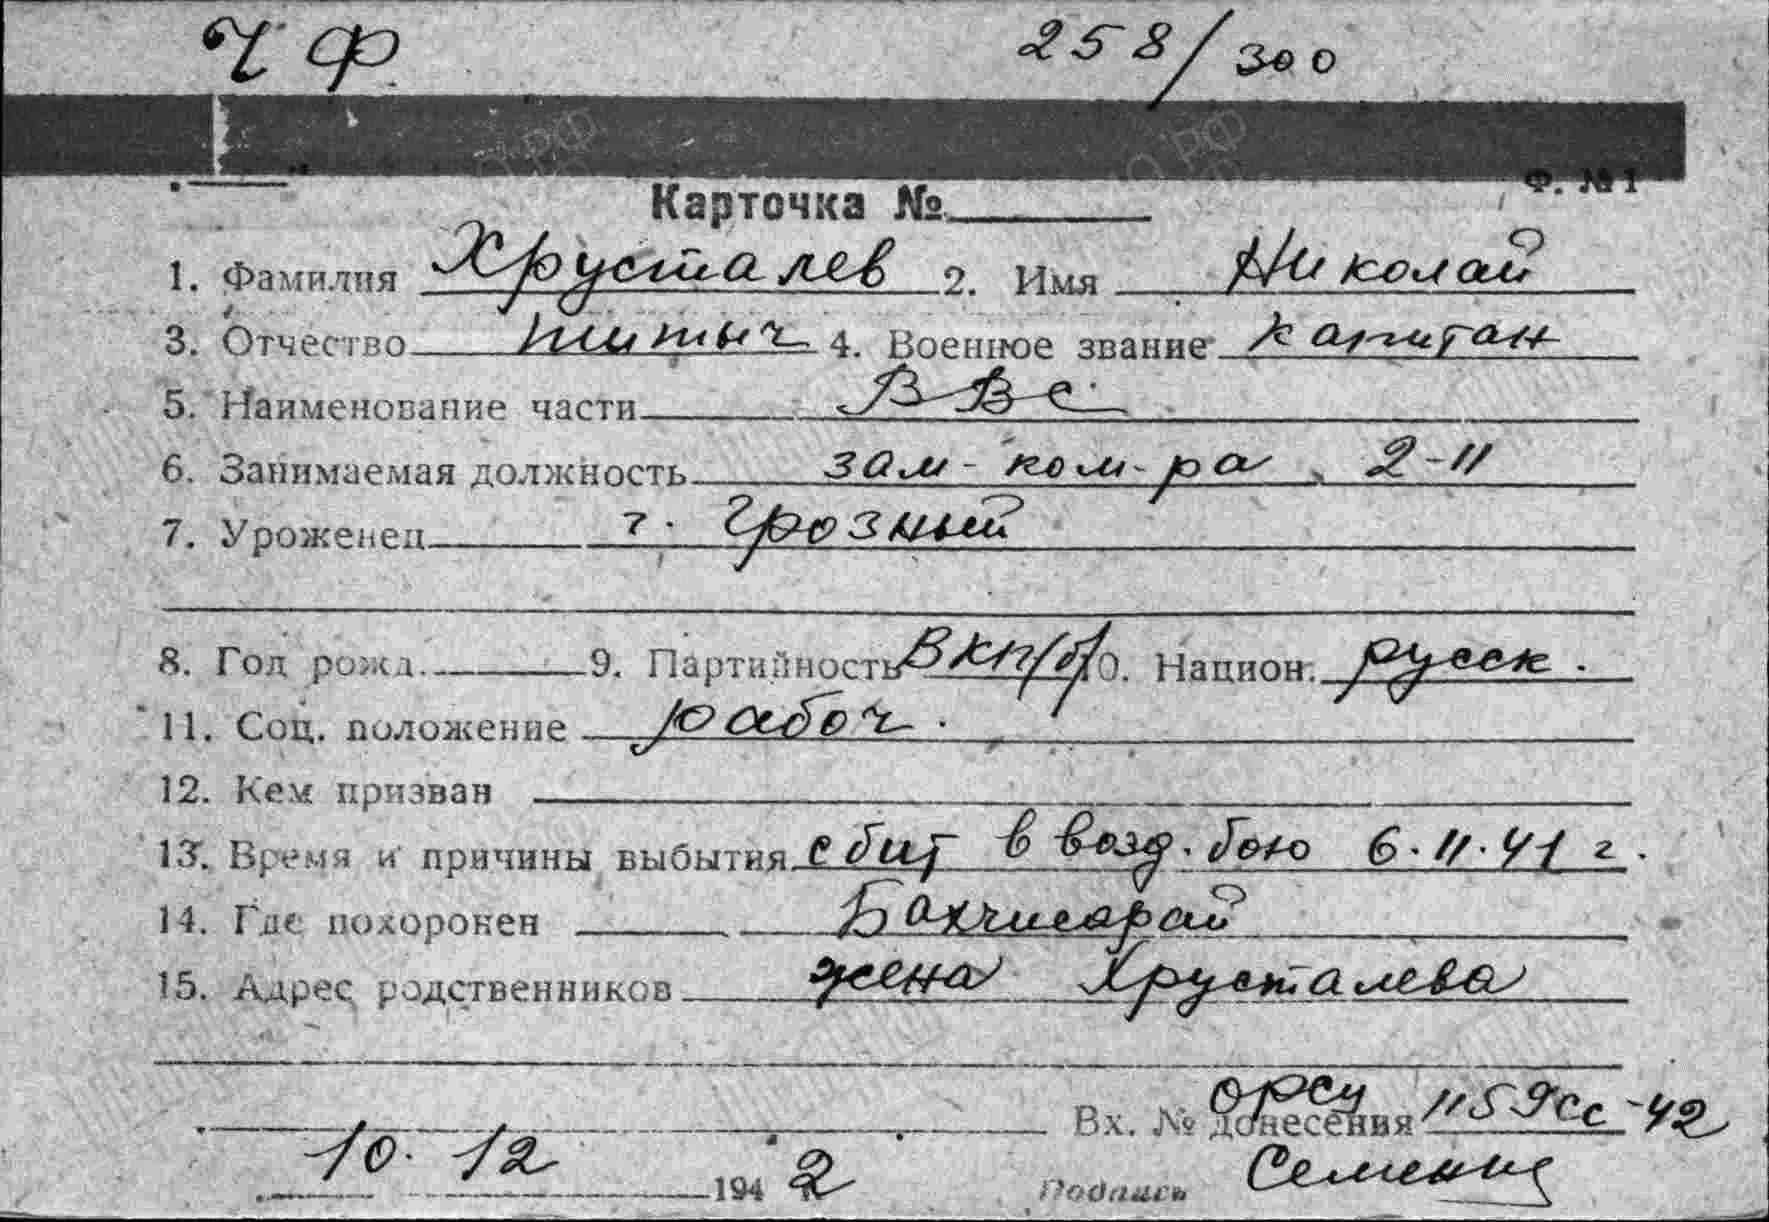 ЧФ 258/300
Ф. №1
Карточка №
1. Фамилия Хрусталев 2. Имя Николай
3. Отчество Титыч 4. Военное звание капитан
5. Наименование части ВВС
6. Занимаемая должность зам-ком-ра 2-11
7. Уроженец г. Грозный
8. Год рожд. 9. Партийность ВКП(б) 10. Национ. русск.
11. Соц. положение рабоч.
12. Кем призван
13. Время и причины выбытия сбит в возд. бою 6.11.41 г.
14. Где похоронен Бахчисарай
15. Адрес родственников жена Хрусталева
Вх. № донесения орсу 1159сс-42
10. 12 1942
Подпись